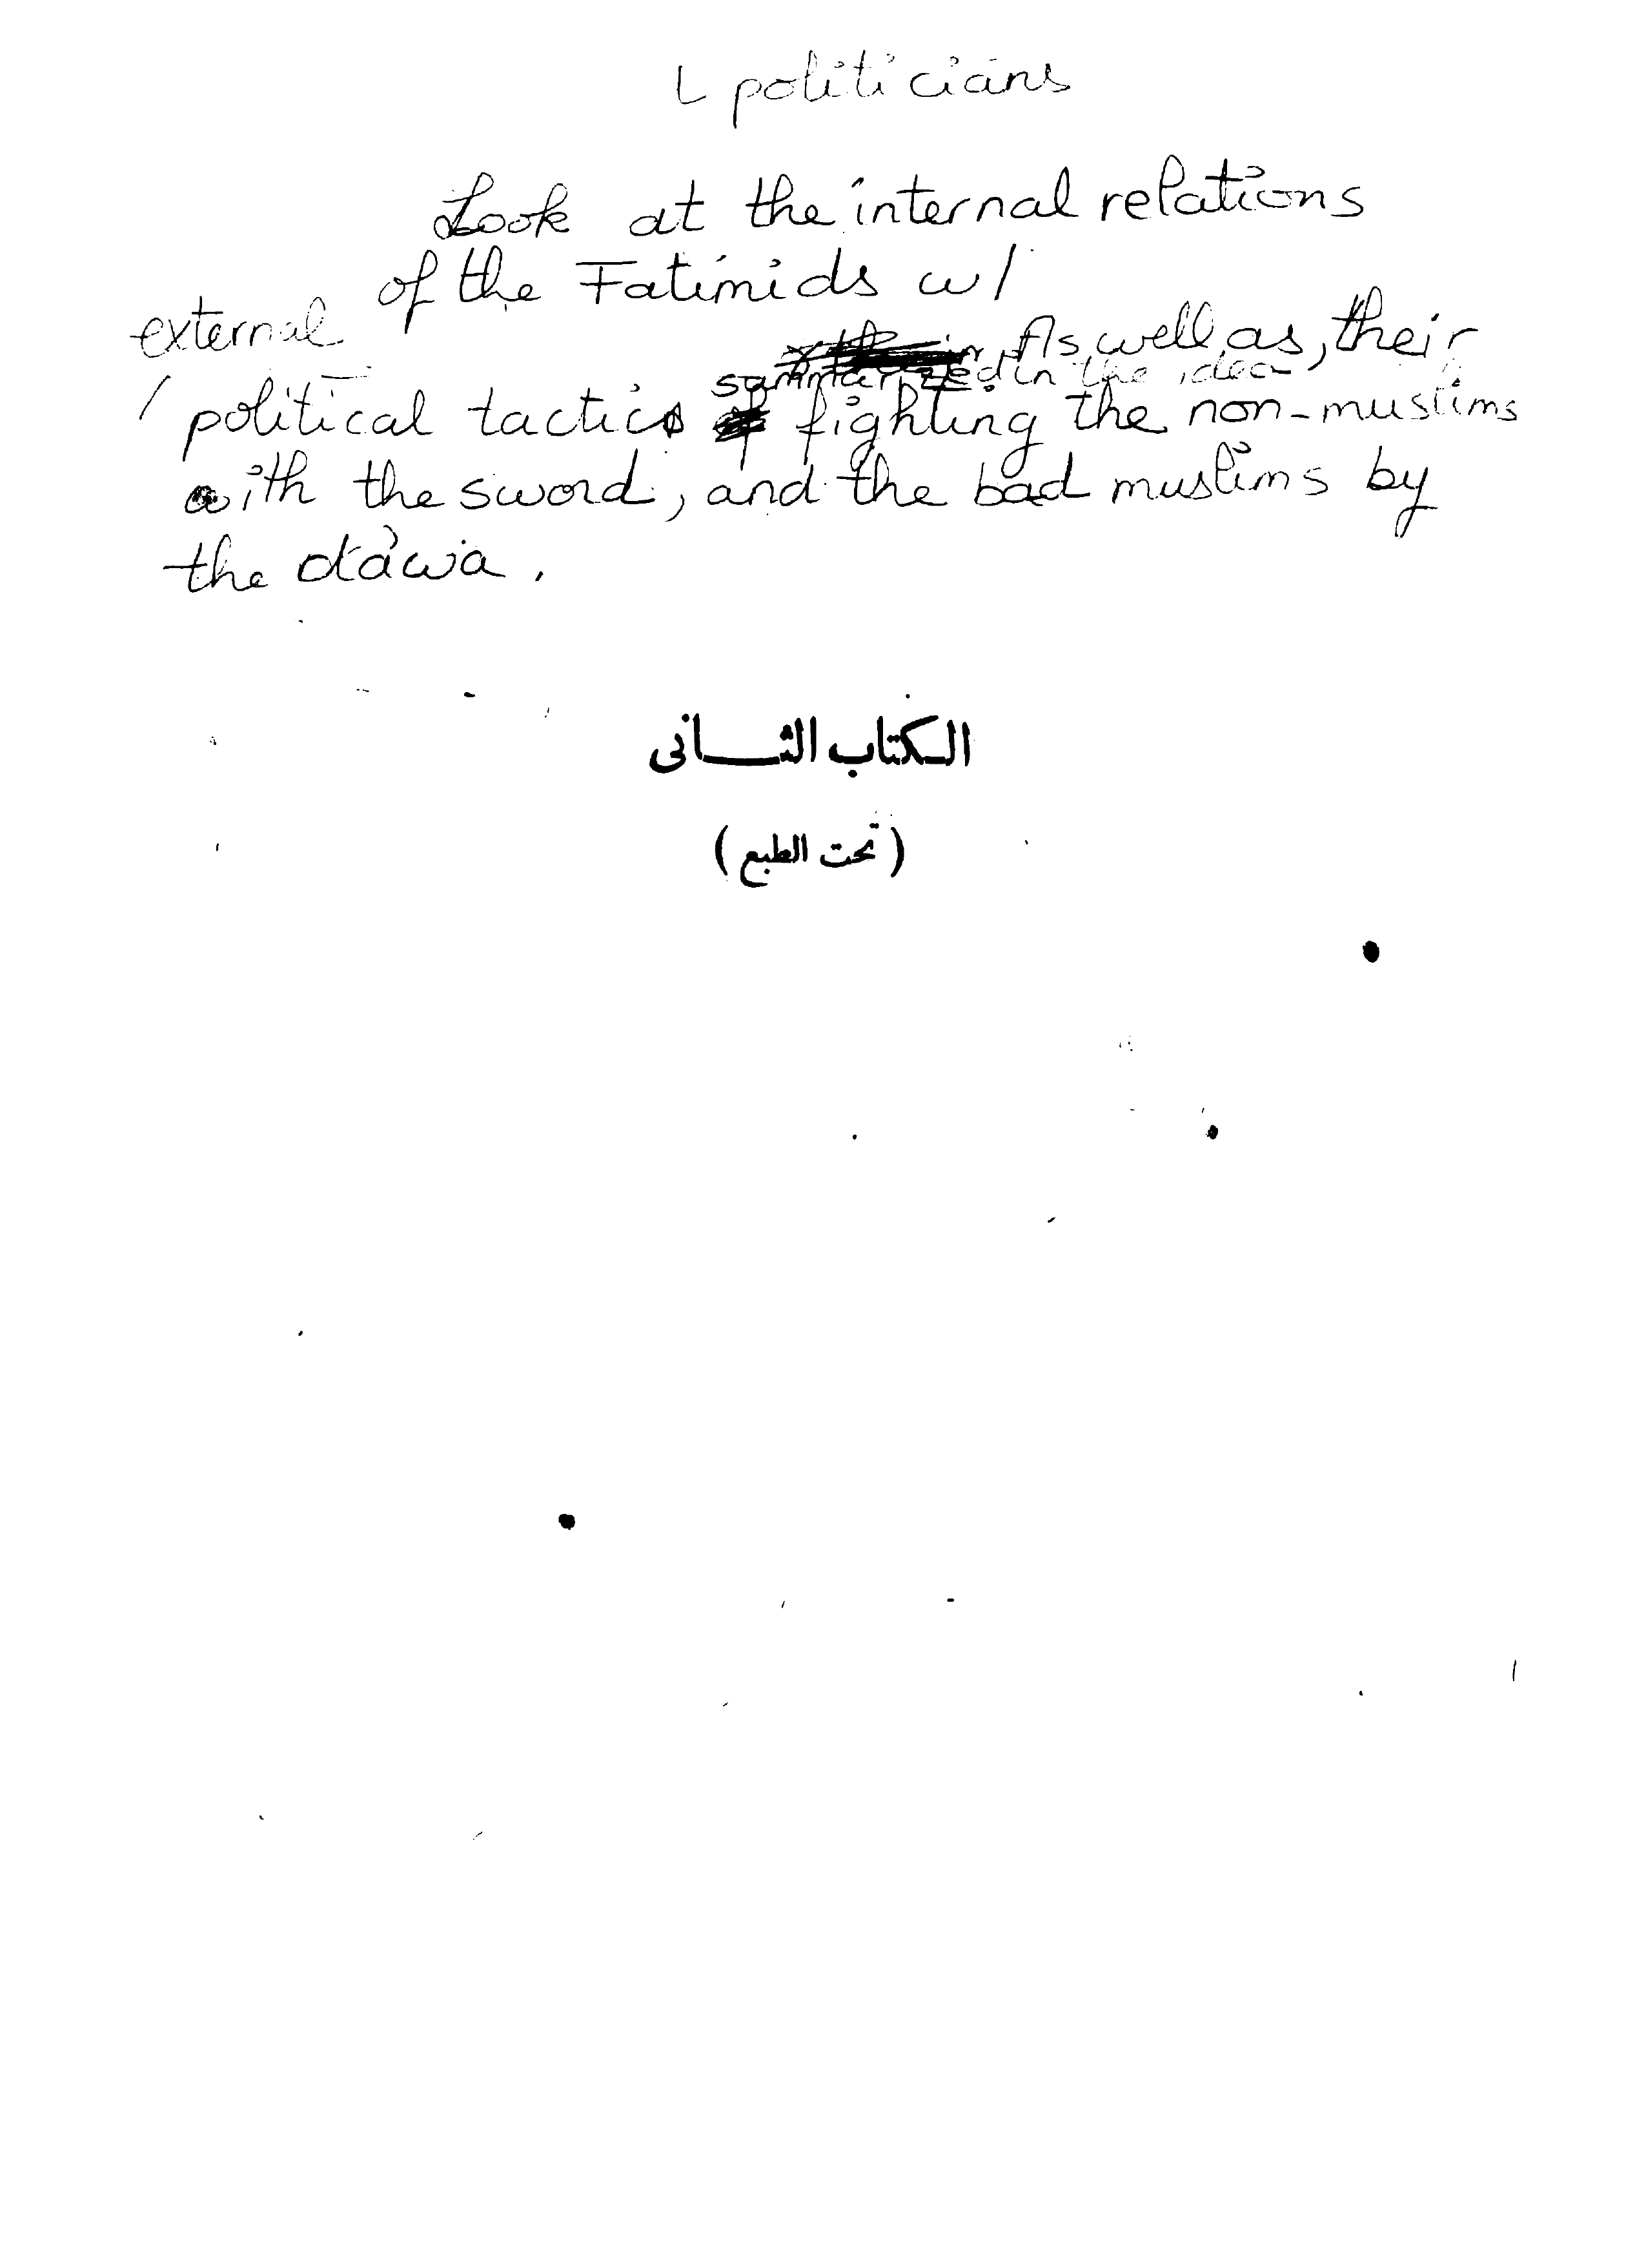 L politicians
Look at the internal relations
of the Fatimids w/
external
As, well, as, their
summarized in the idea
/ political tactics fighting the non-muslims
with the sword, and the bad muslims by
the da'wa.
الكتاب الثانى
(تحت الطبع)